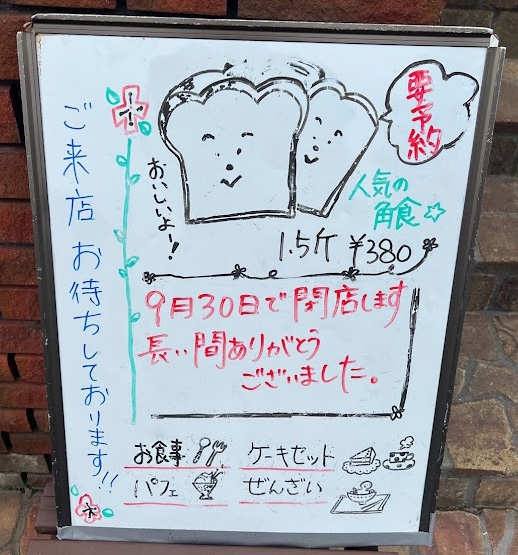 ご来店 お待ちしております!!
要予約
おいしいよー!
人気の
角食☆
1.5斤 ¥380
9月30日で閉店します
長い間ありがとう
ございました。
お食事 ケーキセット
パフェ ぜんざい